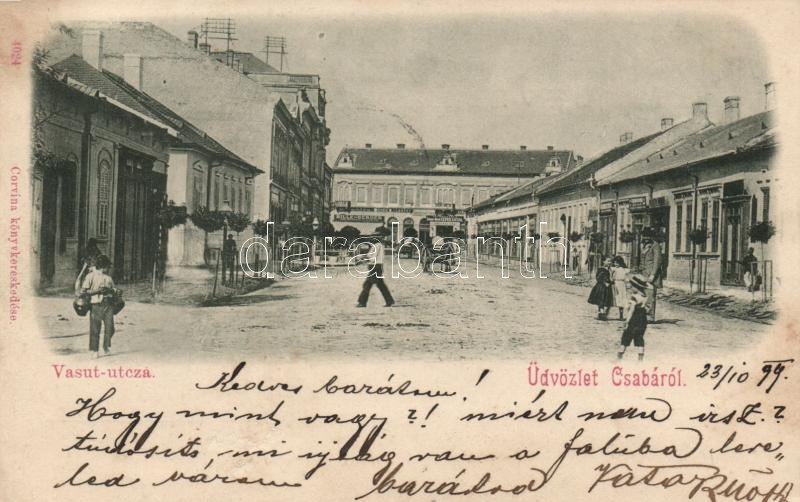 4024
Corvina könyvkereskedése.
darabanth.com
Vasut-utcza.
Üdvözlet Csabáról.
23/10 99
Kedves barátom!
Hogy mint vagy?! miért nem irsz?
tudósits, mi ujság van a faluba leve=
led várom barátod